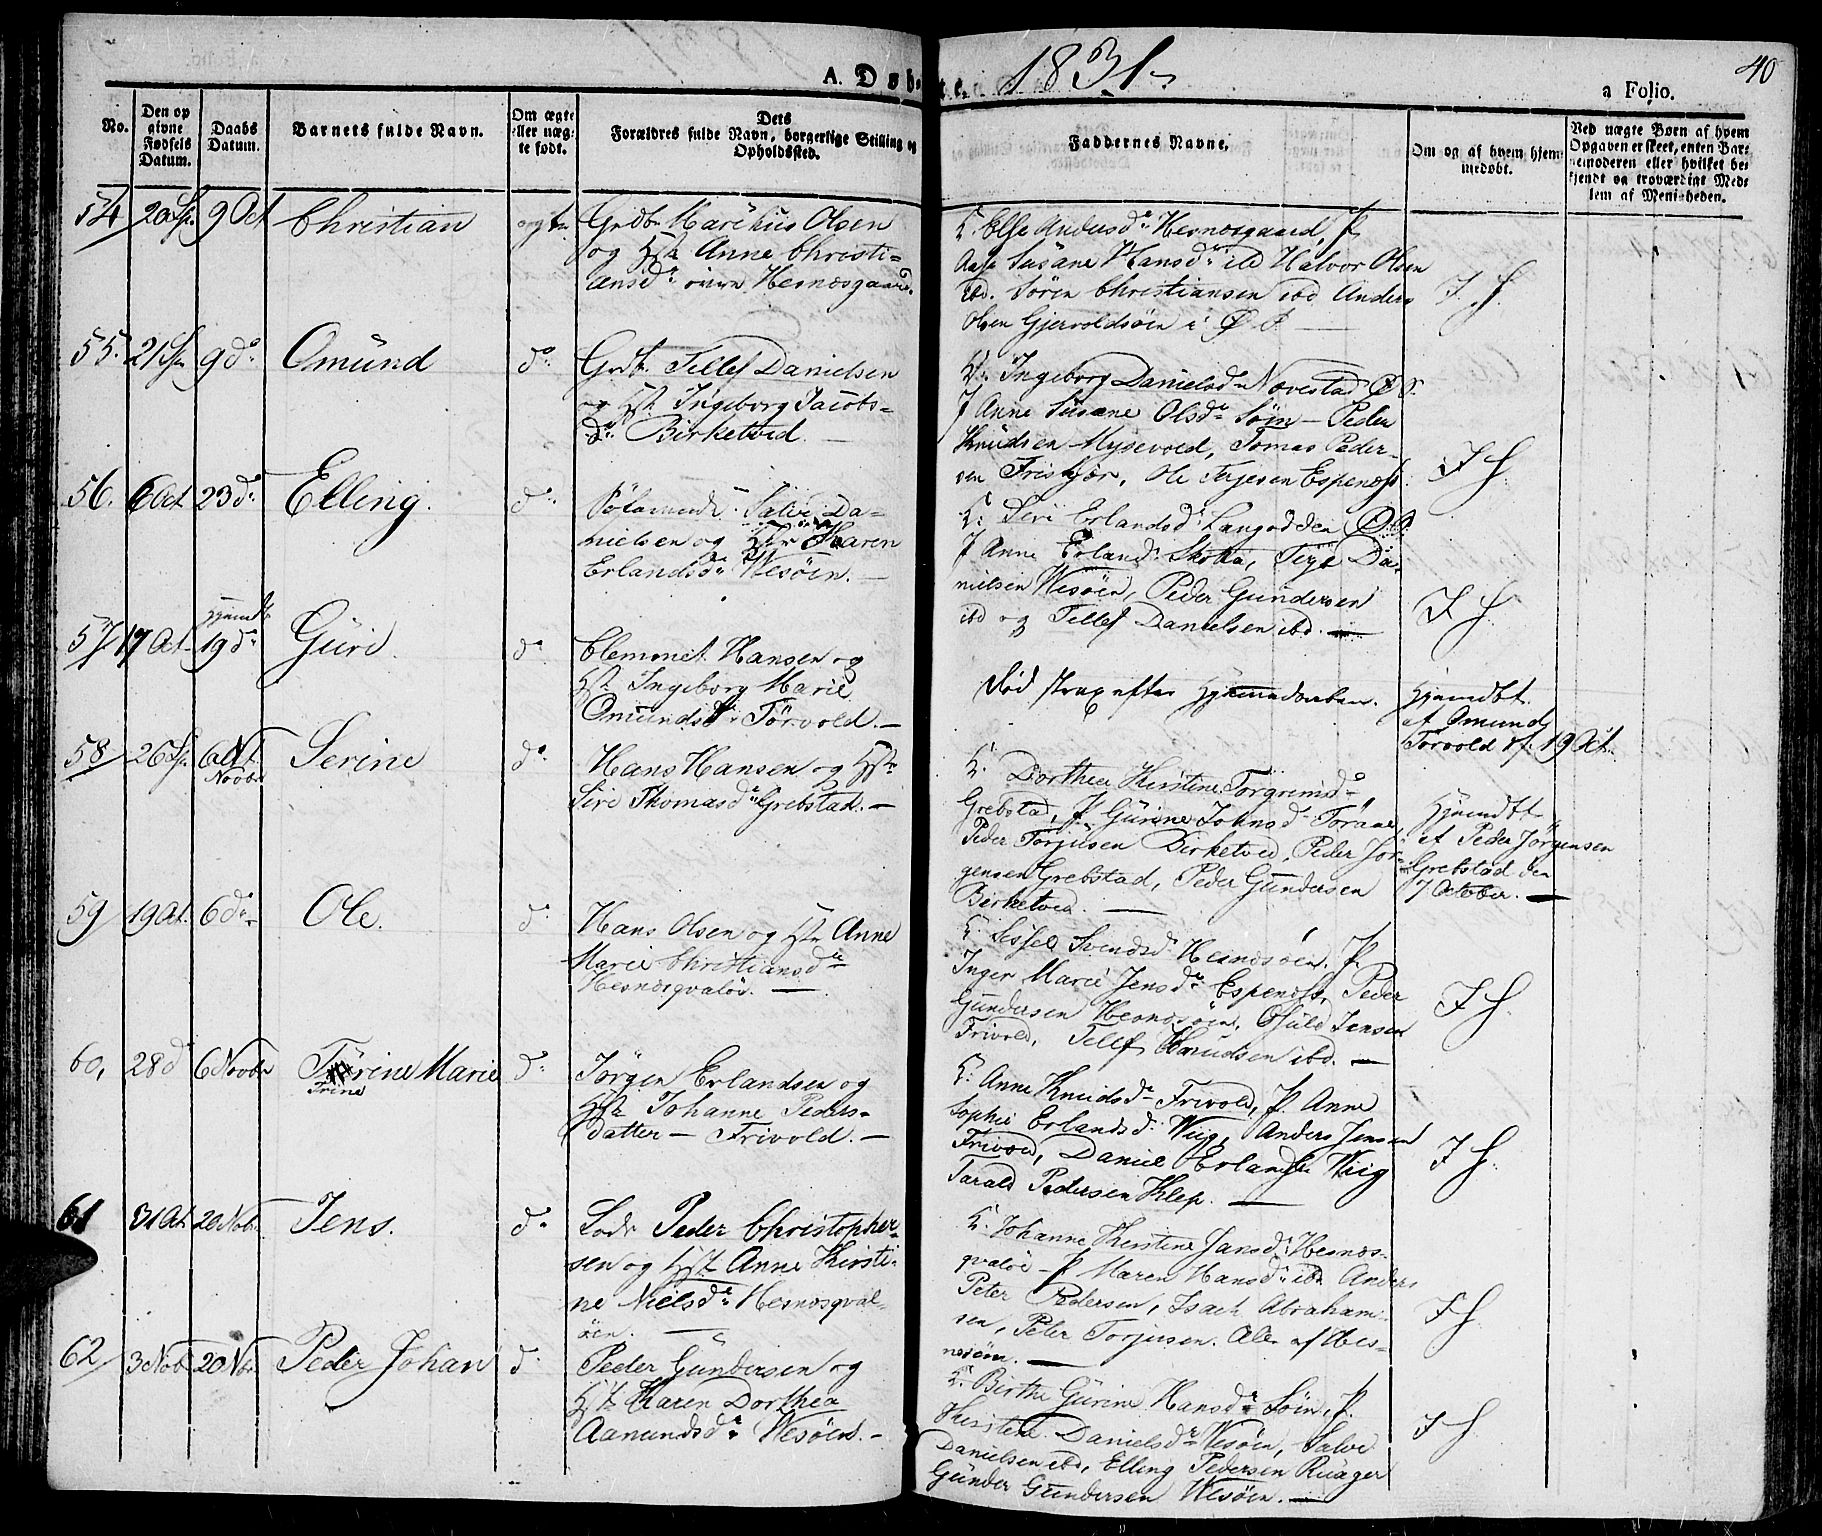 A. Døbte. 1831
a Folio. 40
No.
Den op givne Fødsels Datum.
Daabs Datum.
Barnets fulde Navn.
Om ægte eller uægte født.
Dets Forældres fulde Navn, borgerlige Stilling og Opholdssted.
Faddernes Navne.
Om og af hvem hjemmedøbt.
Ved uægte Børn af hvem
Opgaven er skeet, enten Bar-
nemoderen eller hvilket be-
kjendt og troværdigt Med-
lem af Menigheden.
54 20 Sp. 9 Oct Christian ægte
Grdb. Marchus Olsen
og Hst Anne Christi-
ansd. øvre Hesnæsgaard.
Elsa Andersd. Hesnæsgaard, P.
Susane Hansd. ibd Halvor Olsen
ibd. Sören Christiansen ibd Anders
Olsen Gjervoldsöen i Ø. S.
I. H.
55. 21 Sp. 9 do. Omund do.
Grdb. Tellef Danielsen
og Hst. Ingeborg Jacobs-
dr. Birketved.
Ingeborg Danielsd. Næverstad Ø. S.
J Anne Susane Olsdr. Söm - Peder
Knudsen Mysevold, Tomas Peder-
sen Fristjör, Ole Terjesen Espenæs.
I H.
56. 6 Oct 23 do. Elling. do.
Salve Da-
nielsen og Hst Karen
Erlandsdr. Wesöen.
Siri Erlandsd. Langødden Ø. S.
J Anne Erlandsd. Terje Da-
nielsen Wesöen, Peder Gundersen
ibd og Tellef Danielsen ibd.
I H.
57 17 Oct. Hjemdbt. 19 do. Guri. do.
Clemmet Hansen og
Hst. Ingeborg Marie
Omundsd. Törvold.
död strax efter Hjemmedaaben.
Hjemdbt.
af Omund
Törvold d. 19 Oct.
58 26 Sp. 6 Novbr Serine do.
Hans Hansen og Hst.
Siri Thomasd. Grebstad.
Dorthea Kirstine Torgrimsd.
Grebstad, P. Gurine Johnsd. Törane,
Peder Torjusen Birketved, Peder Jör-
gensen Grebstad, Peder Gundersen
Birketved.
Hjemdbt
af Peder Jörgensen
Grebstad den
7 October.
59 19 Oct. 6 do. Ole. do.
Hans Olsen og Hst. Anne
Marie Christiansd.
Hesnæsqvalöe.
Sessel Svendsd. Hesnæsöen. P.
Inger Marie Jensd. Espenæs, Peder
Gundersen Hesnæsöen, Osuld Jensen
Frivold, Tellef Knudsen ibd.
I H.
60, 28 do 6 Novbr Trine Marie do.
Jörgen Erlandsen og
Hst. Johanne Peders-
datter - Frivold.
Anne Knudsd. Frivold, P. Anne
Sophie Erlandsd. Wiig, Anders Jensen
Frivold, Daniel Erlandsen Wiig
Tarald Pedersen Klep.
I H.
61 31 Oct. 20 Nobr. Jens. do.
Lods Peder Christopher-
sen og Hst Anne Kirsti-
ne Nielsd. Hesnæsqval-
öen.
Johanne Kirstine Jansd. Hesnæs-
qvalöe - P Maren Hansd. ibd Anders
Peter Pedersen, Isach Abraham-
sen, Peter Torjusen. Alle af Hes-
næsöen.
I H
62 3 Nob. 20 Nbr. Peder Johan do.
Peder Gundersen og
Hst. Karen Dorthea
Aamundsd. Wesöen.
Birthe Gurine Hansd. Söm, P.
Kirstine Danielsd. Wesöen, Salve
Danielsen ibd, Elling Pedersen Ruager
Gunder Gundersen Wesöen.
I H